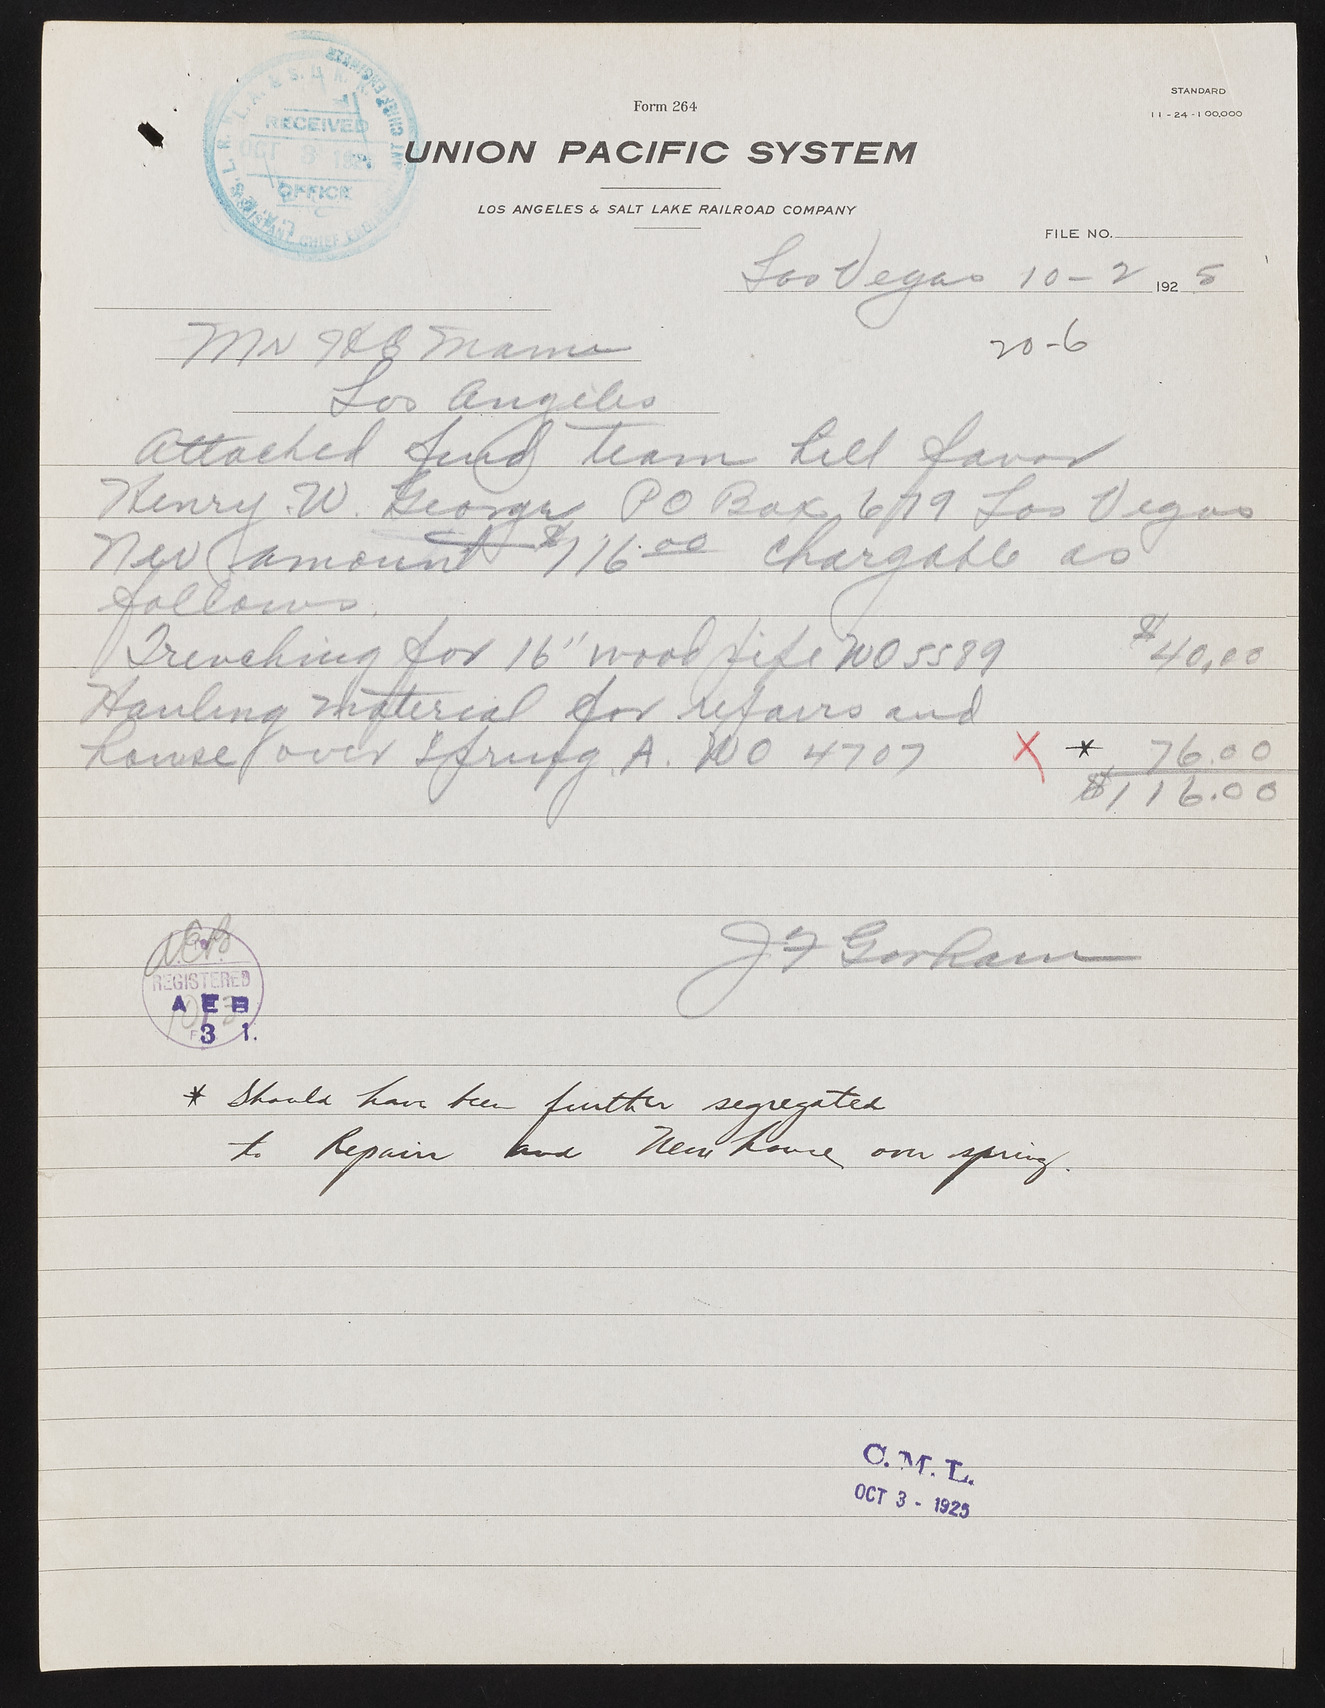 Form 264
STANDARD
11-24-100,000
UNION PACIFIC SYSTEM
LOS ANGELES & SALT LAKE RAILROAD COMPANY
RECEIVED
OCT 3 1925
OFFICE
FILE NO.
Las Vegas 10-2 1925
20-6
Mr
Los Angeles
Attached find team bill favor
Henry W. George PO Box 679 Las Vegas
Nev amount $116.00 chargable as
follows.
Trenching for 16" wood pipe WO 5589 $40.00
Hauling material for repairs and
house over Spring A. WO 4707 X * 76.00
$116.00
J F Gorham
A.E.B.
REGISTERED
A E B
3 1.
* Should have been further segregated
to Repairs and New house over spring.
C. M. L.
OCT 3 - 1925